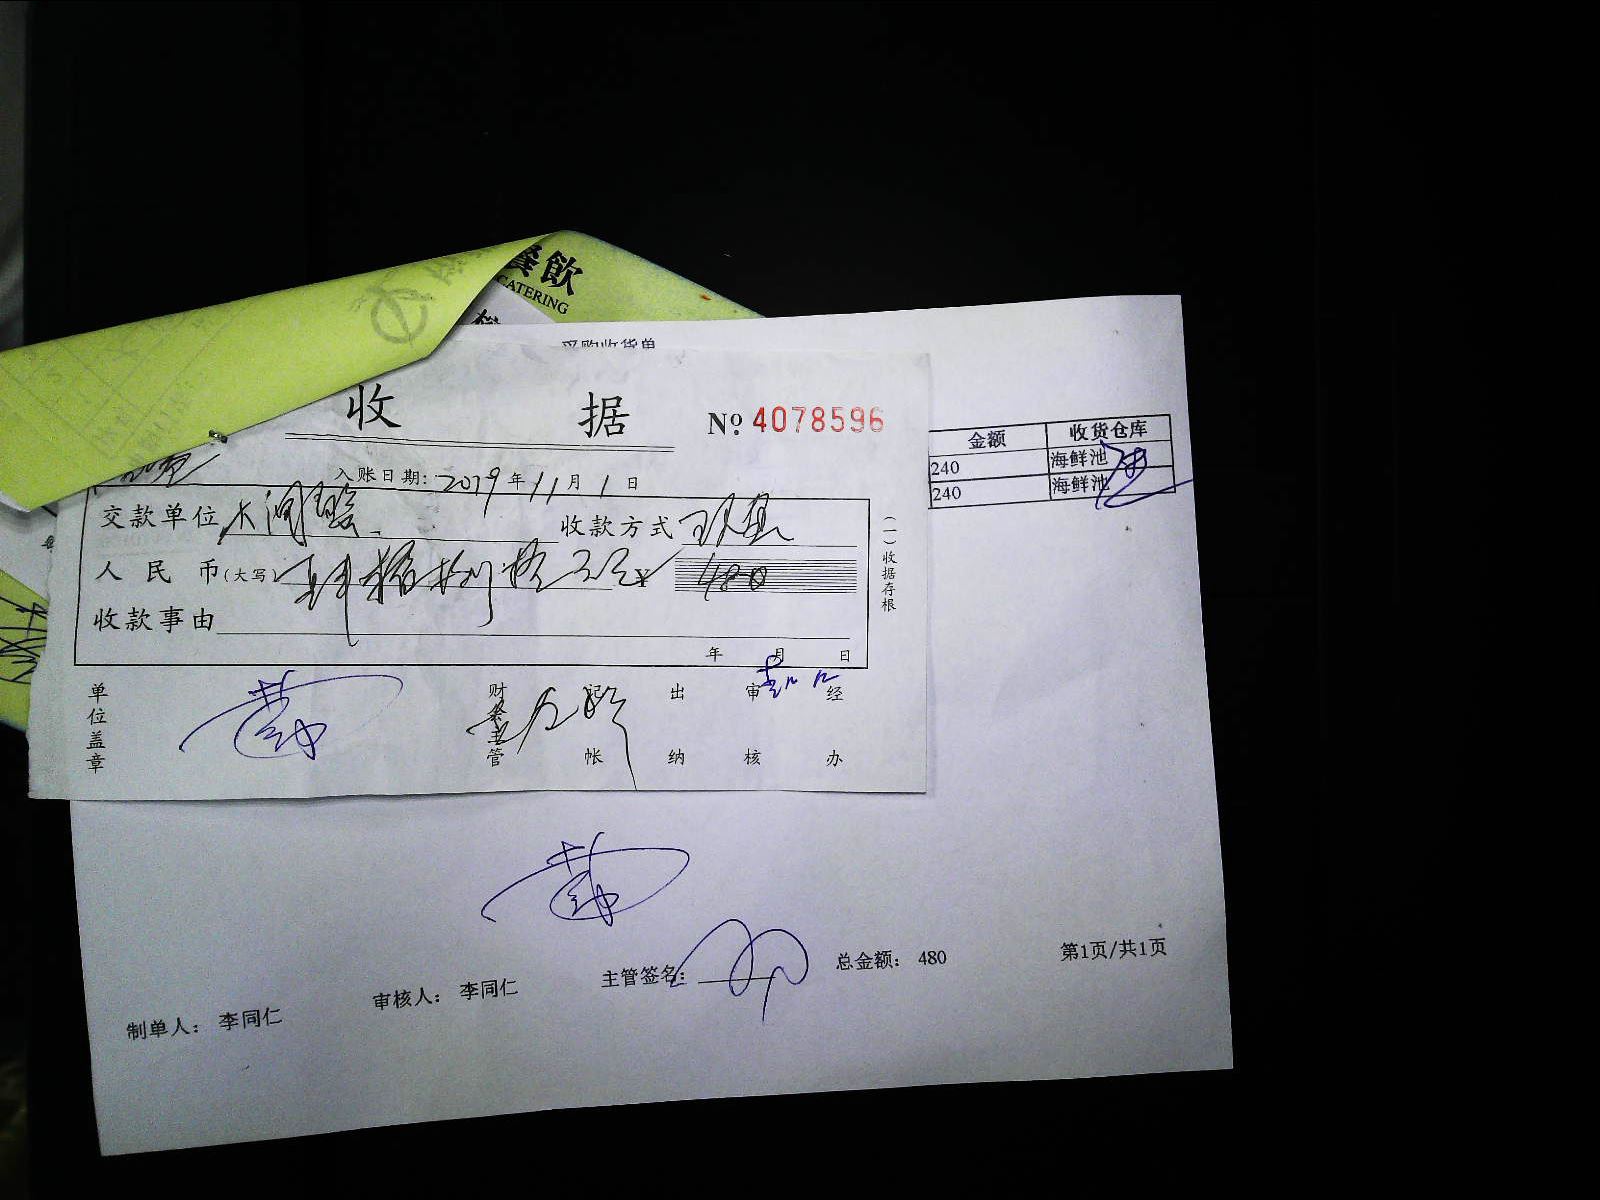 餐飲
CATERING
采购收货单
收 据
№ 4078596
金额 收货仓库
240 海鲜池
240 海鲜池
入账日期: 2019 年 11 月 1 日
交款单位 收款方式 现金
人民币(大写) 肆 佰 捌 拾 元 ¥ 480
收款事由
年 月 日
(一)收据存根
单位盖章 财会主管 记帐 出纳 审核 经办
主管签名:
总金额: 480
第1页/共1页
审核人: 李同仁
制单人: 李同仁